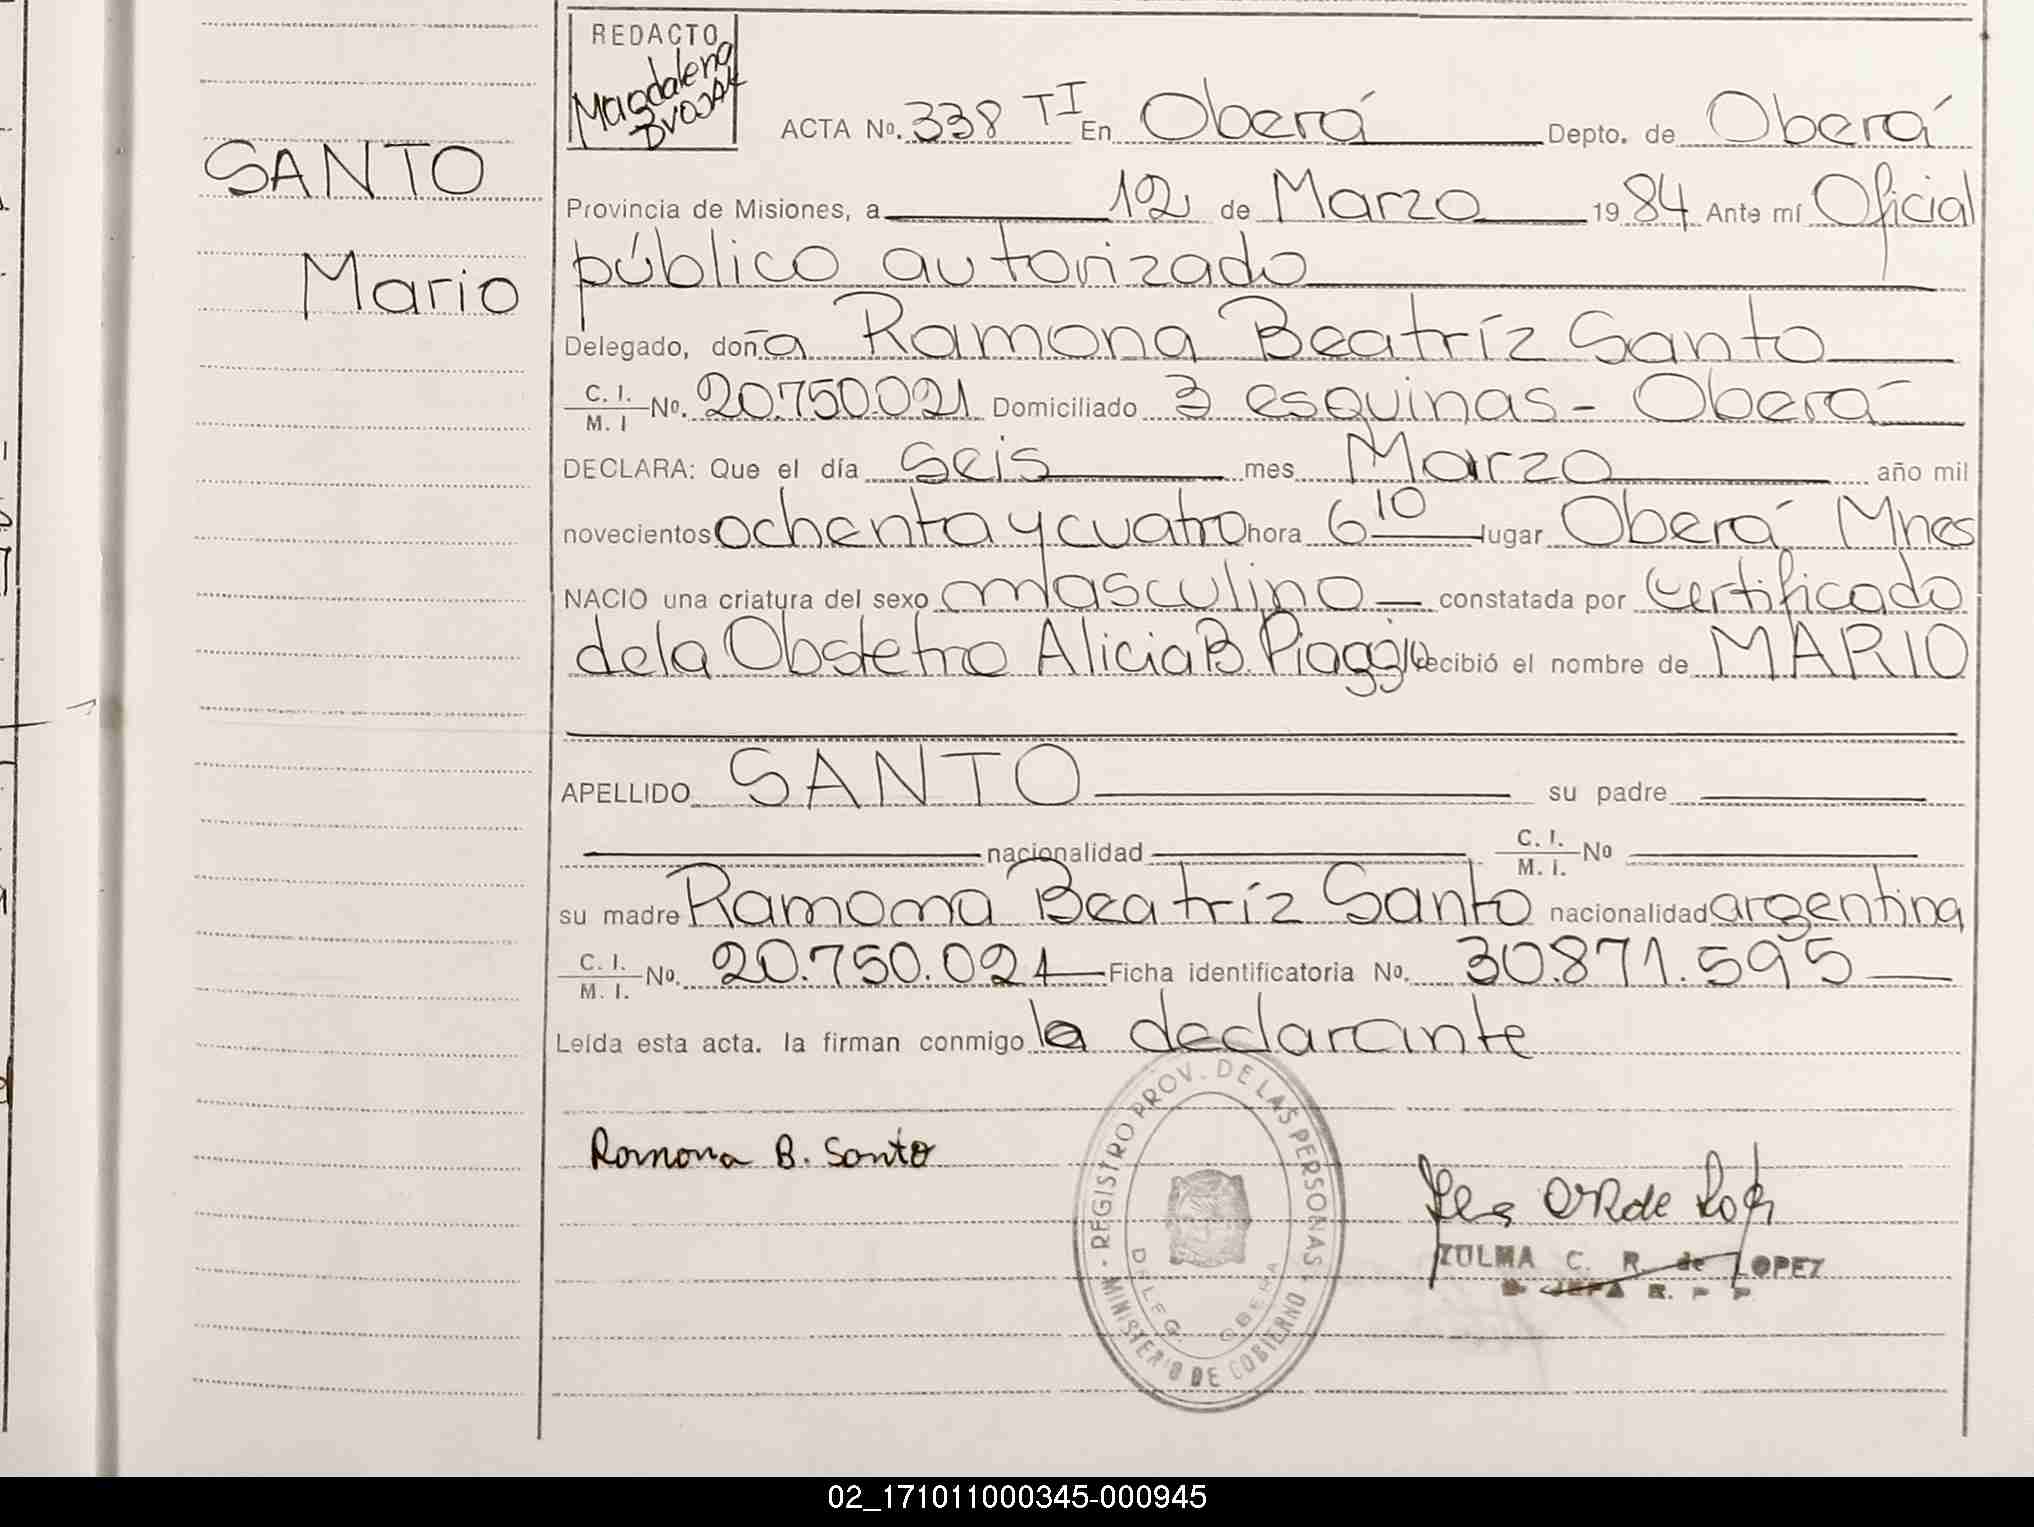 REDACTO
Magdalena
SANTO
Mario
ACTA No. 338 TI En Oberá Depto. de Oberá
Provincia de Misiones, a 12 de Marzo 19 84 Ante mí Oficial
público autorizado
Delegado, doña Ramona Beatríz Santo
C. I. / M. I No. 20.750.021 Domiciliado 3 esquinas - Oberá
DECLARA: Que el día seis mes Marzo año mil
novecientos ochenta y cuatro hora 6 10 lugar Oberá Mnes
NACIO una criatura del sexo masculino constatada por certificado
de la Obstetra Alicia B. Piaggio recibió el nombre de MARIO
APELLIDO SANTO su padre
nacionalidad C. I. / M. I. No
su madre Ramona Beatríz Santo nacionalidad argentina
C. I. / M. I. No. 20.750.021 Ficha identificatoria No. 30.871.595
Leída esta acta. la firman conmigo la declarante
Ramona B. Santo
REGISTRO PROV. DE LAS PERSONAS - MINISTERIO DE GOBIERNO
DELEG. OBERA
ZULMA C. R. de LOPEZ
02_171011000345-000945